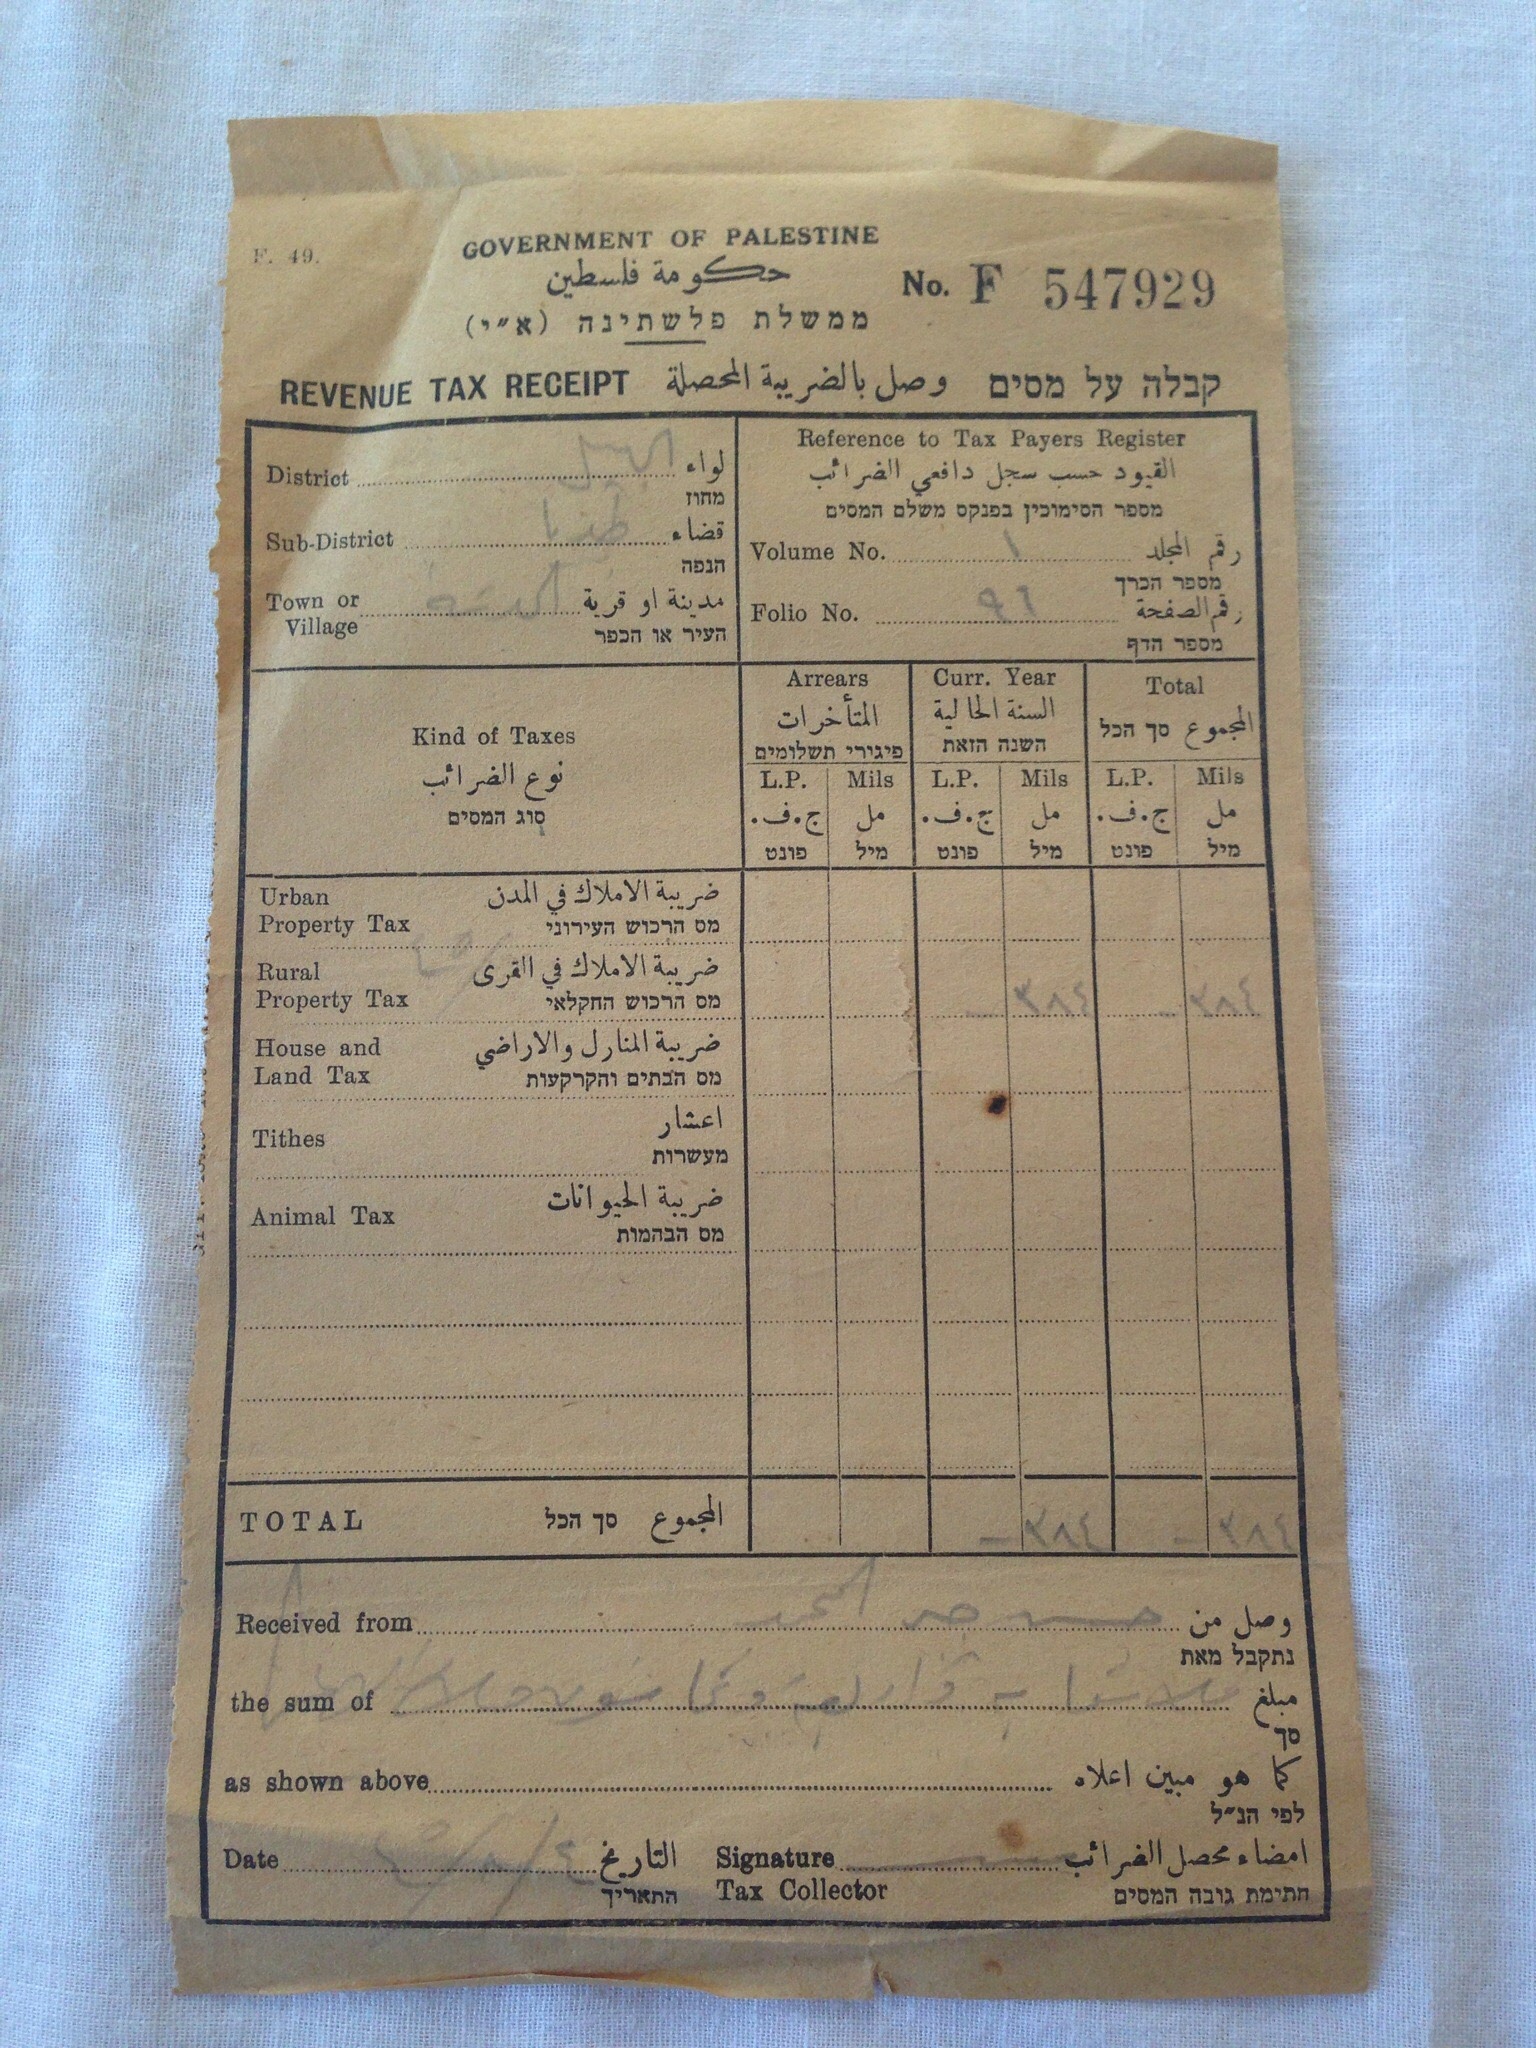 F. 49.
GOVERNMENT OF PALESTINE
حكومة فلسطين
No. F 547929
ממשלת פלשתינה (א״י)
REVENUE TAX RECEIPT وصل بالضريبة المحصلة קבלה על מסים
District لواء
מחוז
Sub-District قضاء
הנפה
Town or Village مدينة او قرية
העיר או הכפר
Reference to Tax Payers Register
القيود حسب سجل دافعي الضرائب
מספר הסימוכין בפנקס משלם המסים
Volume No. ١ رقم المجلد
מספר הכרך
Folio No. ٩٦ رقم الصفحة
מספר הדף
Kind of Taxes
نوع الضرائب
סוג המסים
Arrears
المتأخرات
פיגורי תשלומים
Curr. Year
السنة الحالية
השנה הזאת
Total
المجموع סך הכל
L.P. Mils L.P. Mils L.P. Mils
ج.ف. مل ج.ف. مل ج.ف. مل
פונט מיל פונט מיל פונט מיל
Urban ضريبة الاملاك في المدن
Property Tax מס הרכוש העירוני
Rural ضريبة الاملاك في القرى
Property Tax מס הרכוש החקלאי — ٣٨٤ — ٣٨٤
House and ضريبة المنازل والاراضي
Land Tax מס הבתים והקרקעות
Tithes اعشار
מעשרות
Animal Tax ضريبة الحيوانات
מס הבהמות
TOTAL סך הכל المجموع — ٣٨٤ — ٣٨٤
Received from وصل من
נתקבל מאת
the sum of مبلغ
סך
as shown above كما هو مبين اعلاه
לפי הנ״ל
Date التاريخ
התאריך
Signature امضاء محصل الضرائب
Tax Collector חתימת גובה המסים